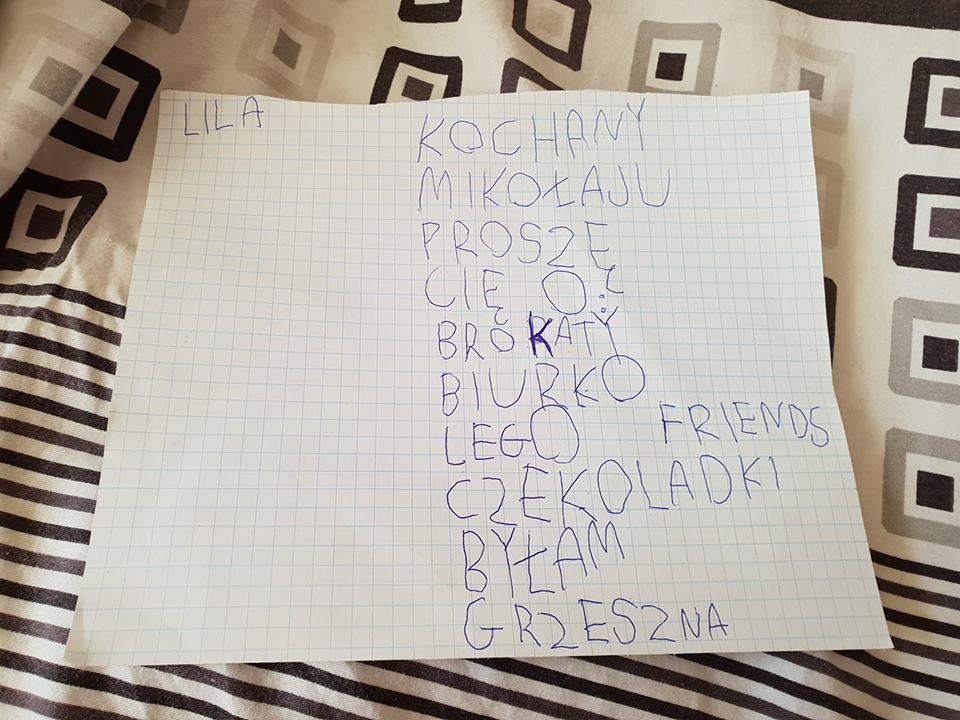 LILA
KOCHANY
MIKOŁAJU
PROSZĘ
CIĘ O:
BROKATY
BIURKO
LEGO FRIENDS
CZEKOLADKI
BYŁAM
GRZESZNA